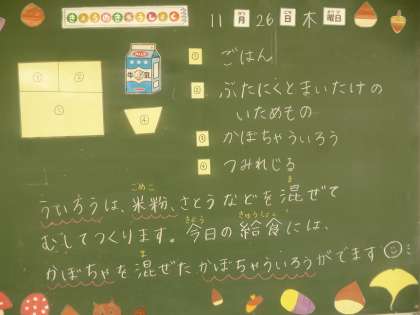 きょうのきゅうしょく
11 月 26 日 木 曜日
① ごはん
② ぶたにくとまいたけの
いためもの
③ かぼちゃういろう
④ つみれじる
① ② ③ ④
牛乳
ういろうは、米粉、さとうなどを混ぜて
こめこ ま
むしてつくります。今日の給食には、
きょう きゅうしょく
かぼちゃを混ぜたかぼちゃういろうがでます
ま